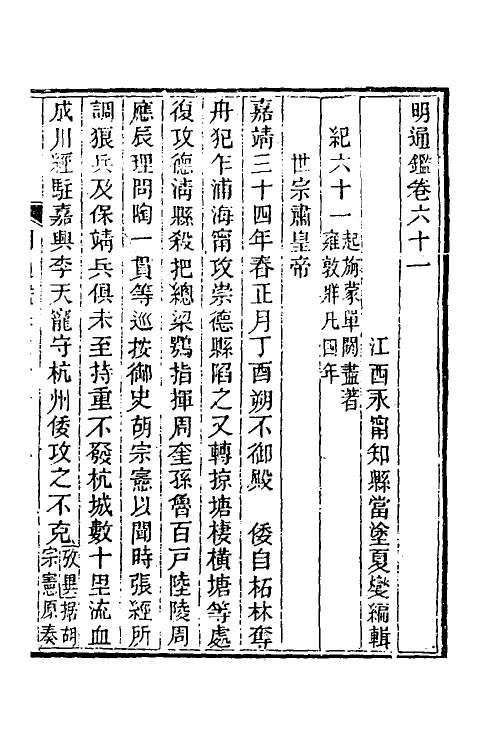 明通鑑卷六十一
江西永甯知縣當塗夏燮編輯
紀六十一起旃蒙單閼盡著雍敦牂凡四年
世宗肅皇帝
嘉靖三十四年春正月丁酉朔不御殿　倭自柘林奪
舟犯乍浦海甯攻崇德縣陷之又轉掠塘棲橫塘等處
復攻德淸縣殺把總梁鶚指揮周奎孫魯百戸陸陵周
應辰理問陶一貫等巡按御史胡宗憲以聞時張經所
調狼兵及保靖兵俱未至持重不發杭城數十里流血
成川經駐嘉興李天寵守杭州倭攻之不克攷異據胡宗憲原奏